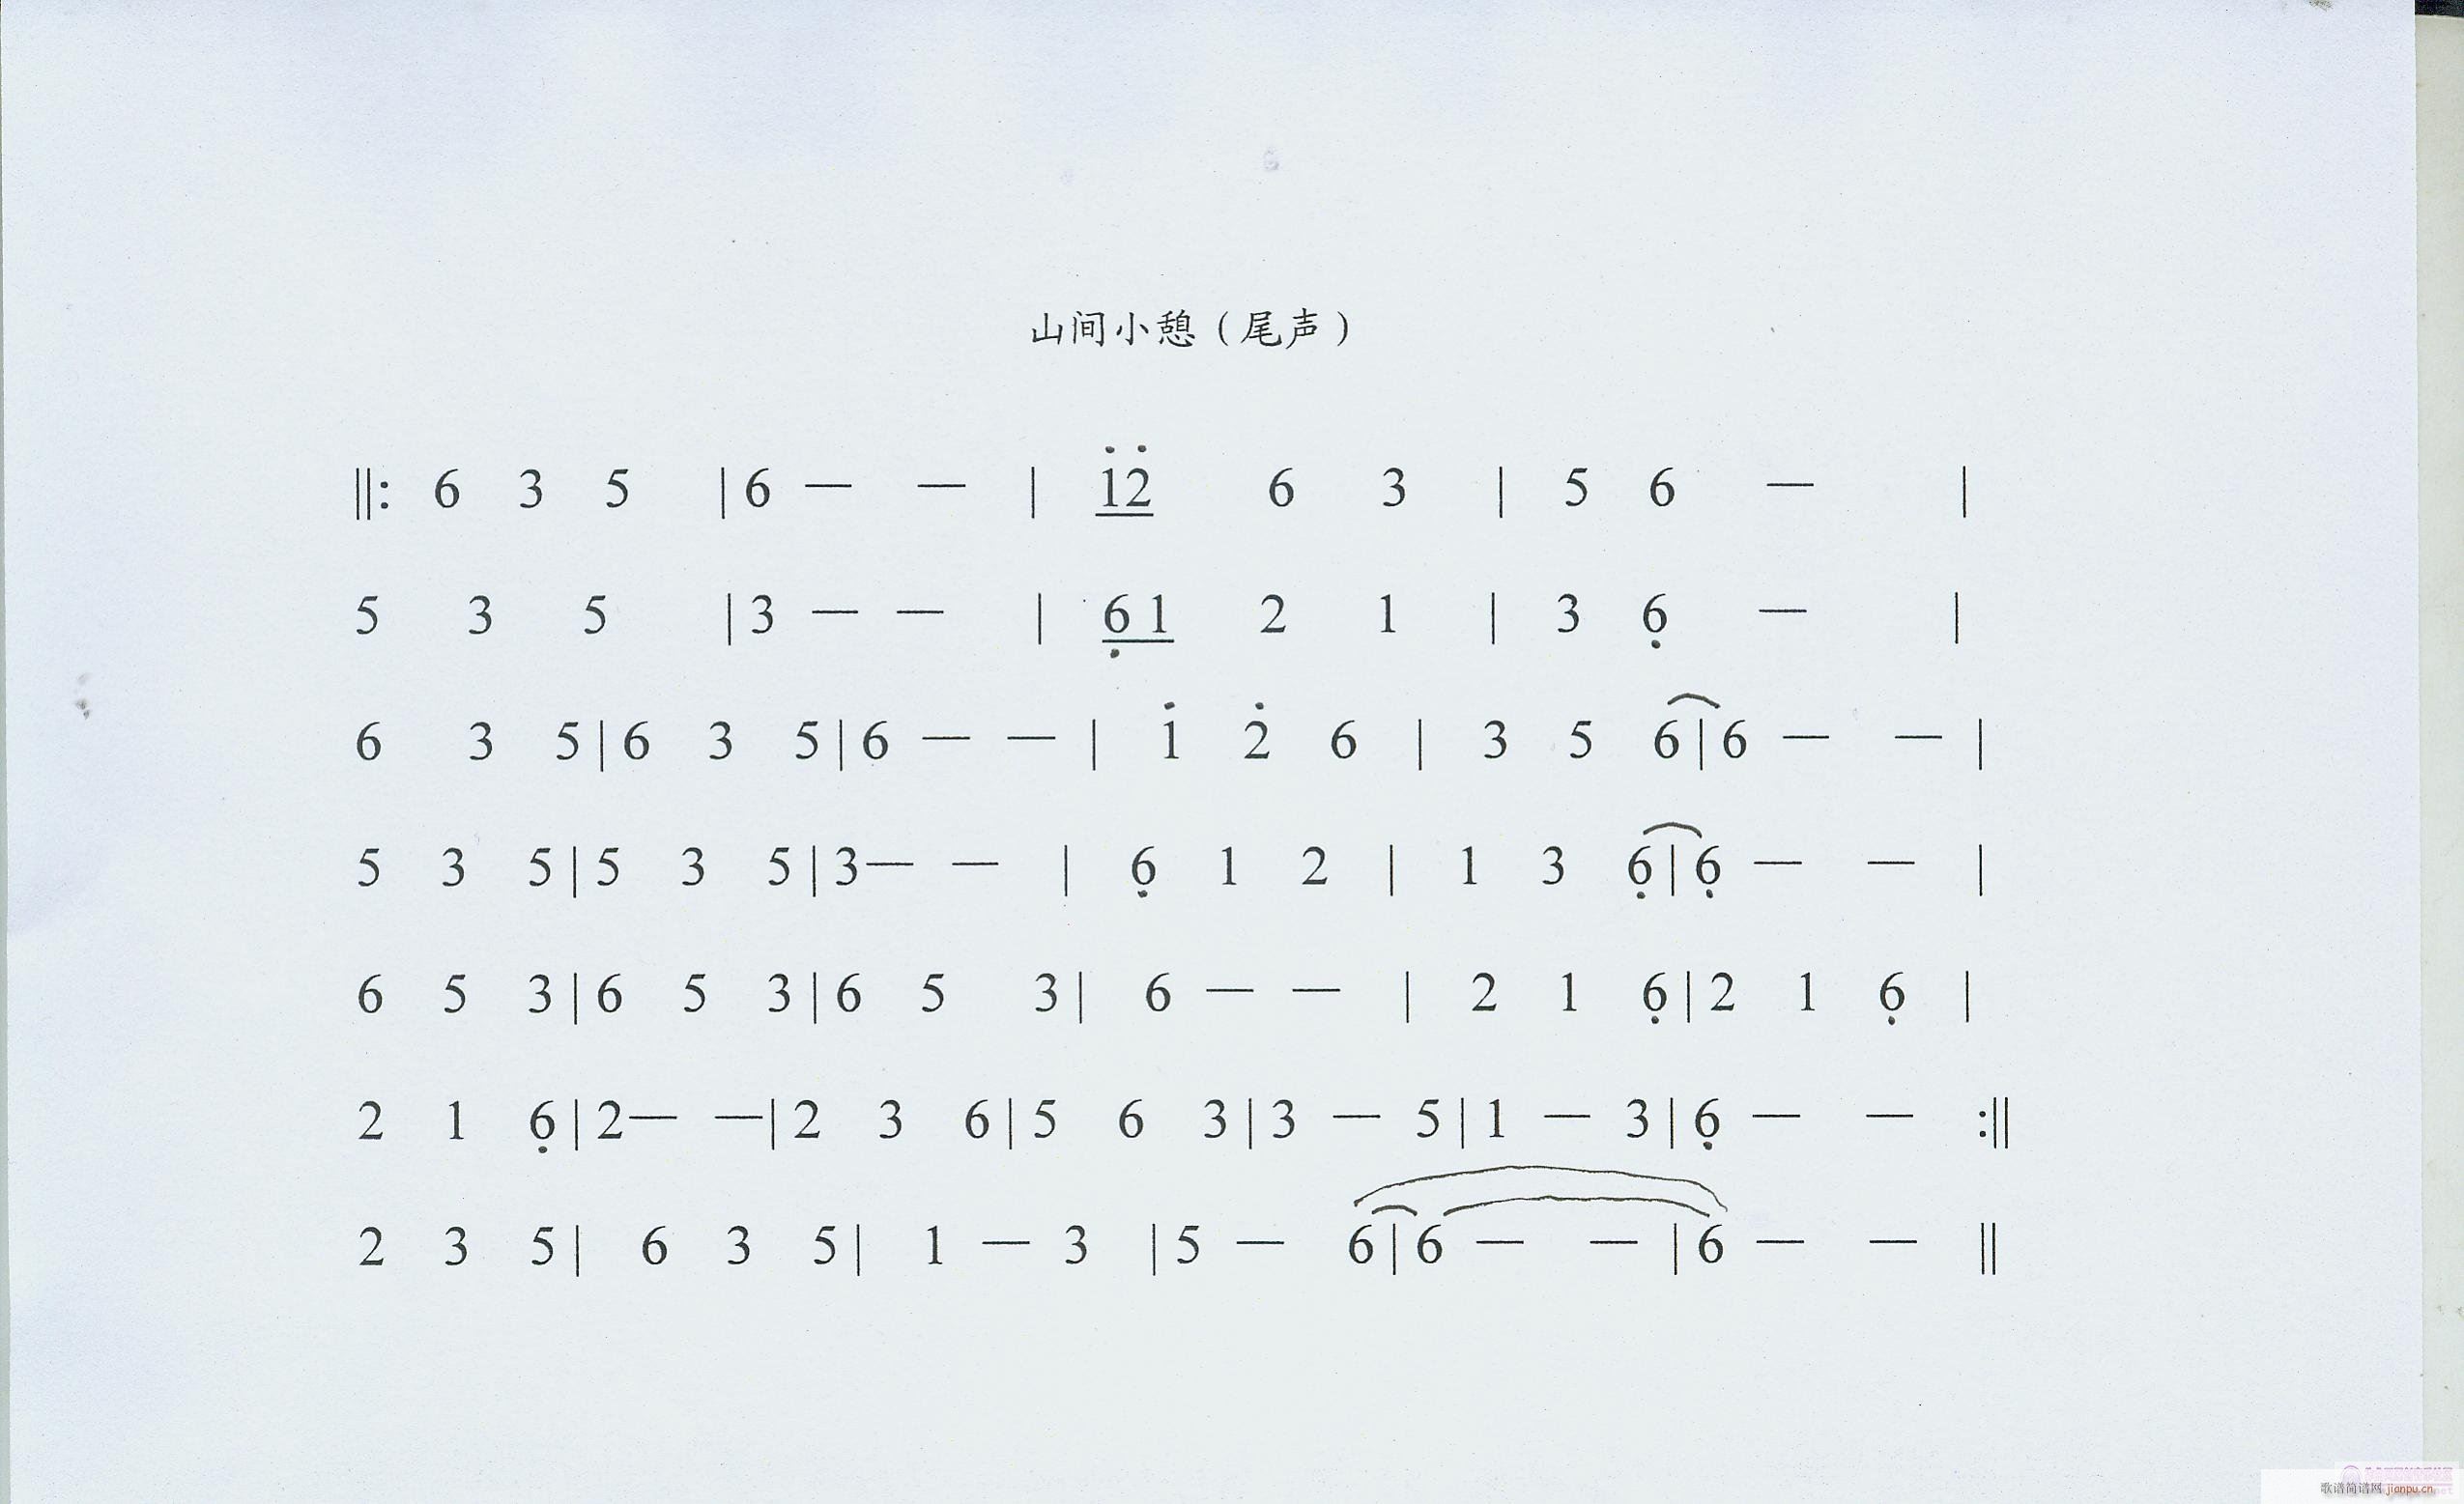 山间小憩（尾声）
‖: 6 3 5 | 6 — — | i̇2̇ 6 3 | 5 6 — |
5 3 5 | 3 — — | 6̣ 1 2 1 | 3 6̣ — |
6 3 5 | 6 3 5 | 6 — — | 1̇ 2̇ 6 | 3 5 6 | 6 — — |
5 3 5 | 5 3 5 | 3 — — | 6̣ 1 2 | 1 3 6̣ | 6̣ — — |
6 5 3 | 6 5 3 | 6 5 3 | 6 — — | 2 1 6̣ | 2 1 6̣ |
2 1 6̣ | 2 — — | 2 3 6 | 5 6 3 | 3 — 5 | 1 — 3 | 6̣ — — :‖
2 3 5 | 6 3 5 | 1 — 3 | 5 — 6 | 6 — — | 6 — — ‖
歌谱简谱网 jianpu.cn